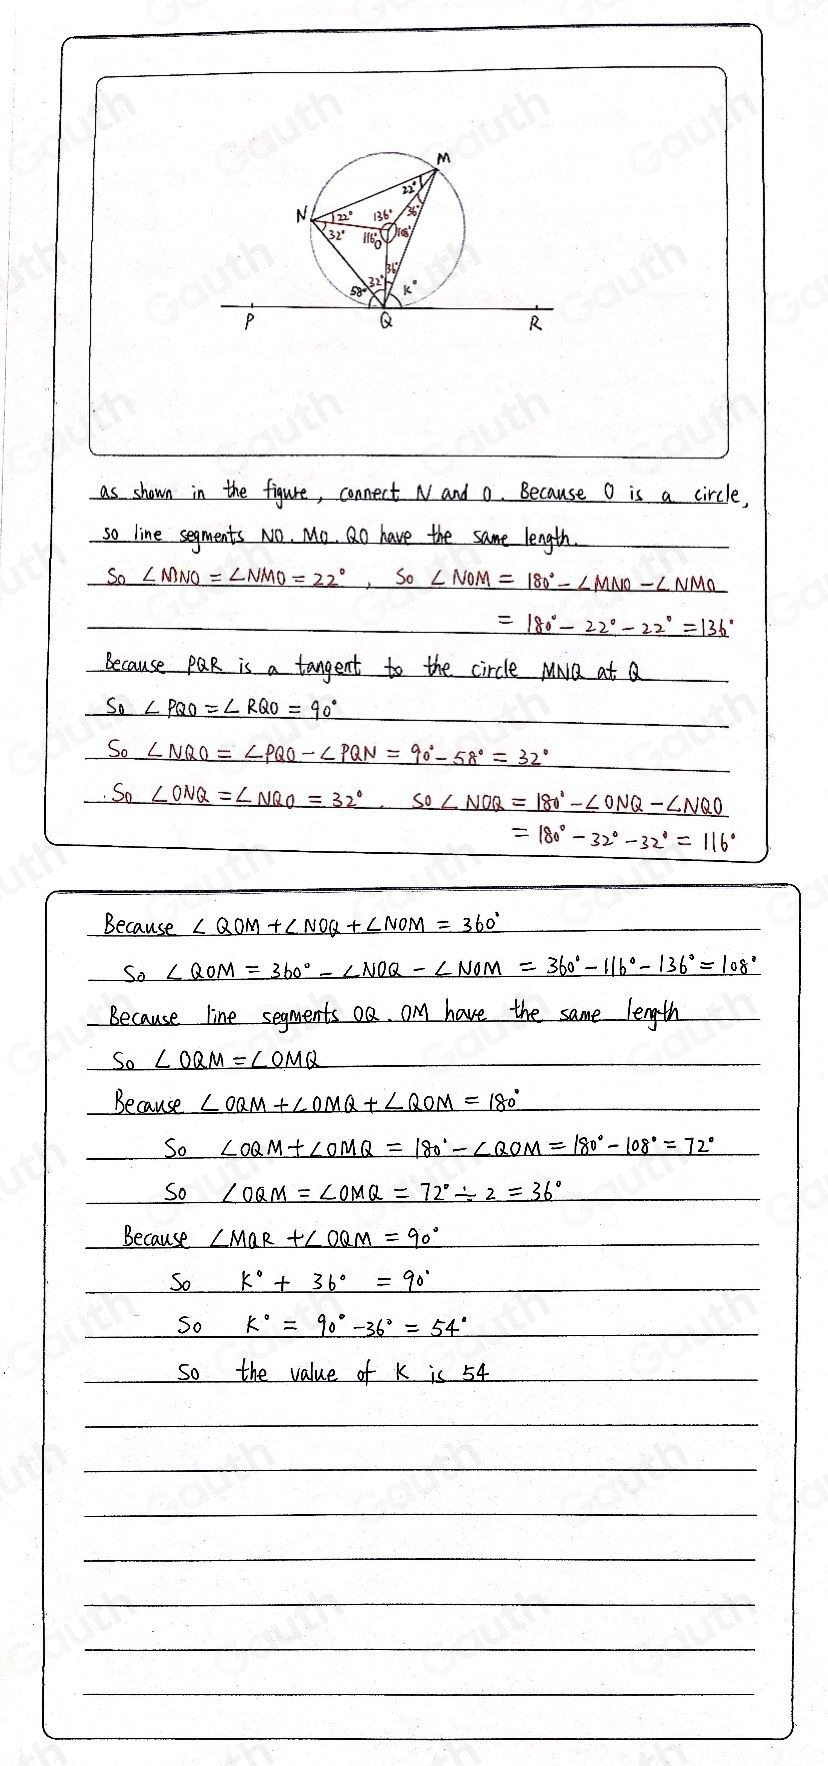 M
22°
N
22°
136°
36°
32°
116°
O
108°
36°
32°
58°
K°
P
Q
R
as shown in the figure, connect N and O. Because O is a circle,
so line segments NO. MO. QO have the same length.
So ∠MNO = ∠NMO = 22°, So ∠NOM = 180° - ∠MNO - ∠NMO
= 180° - 22° - 22° = 136°
Because PQR is a tangent to the circle MNQ at Q
So ∠PQO = ∠RQO = 90°
So ∠NQO = ∠PQO - ∠PQN = 90° - 58° = 32°
So ∠ONQ = ∠NQO = 32°. So ∠NOQ = 180° - ∠ONQ - ∠NQO
= 180° - 32° - 32° = 116°
Because ∠QOM + ∠NOQ + ∠NOM = 360°
So ∠QOM = 360° - ∠NOQ - ∠NOM = 360° - 116° - 136° = 108°
Because line segments OQ. OM have the same length
So ∠OQM = ∠OMQ
Because ∠OQM + ∠OMQ + ∠QOM = 180°
So ∠OQM + ∠OMQ = 180° - ∠QOM = 180° - 108° = 72°
So ∠OQM = ∠OMQ = 72° ÷ 2 = 36°
Because ∠MQR + ∠OQM = 90°
So K° + 36° = 90°
So K° = 90° - 36° = 54°
So the value of K is 54
Gauth